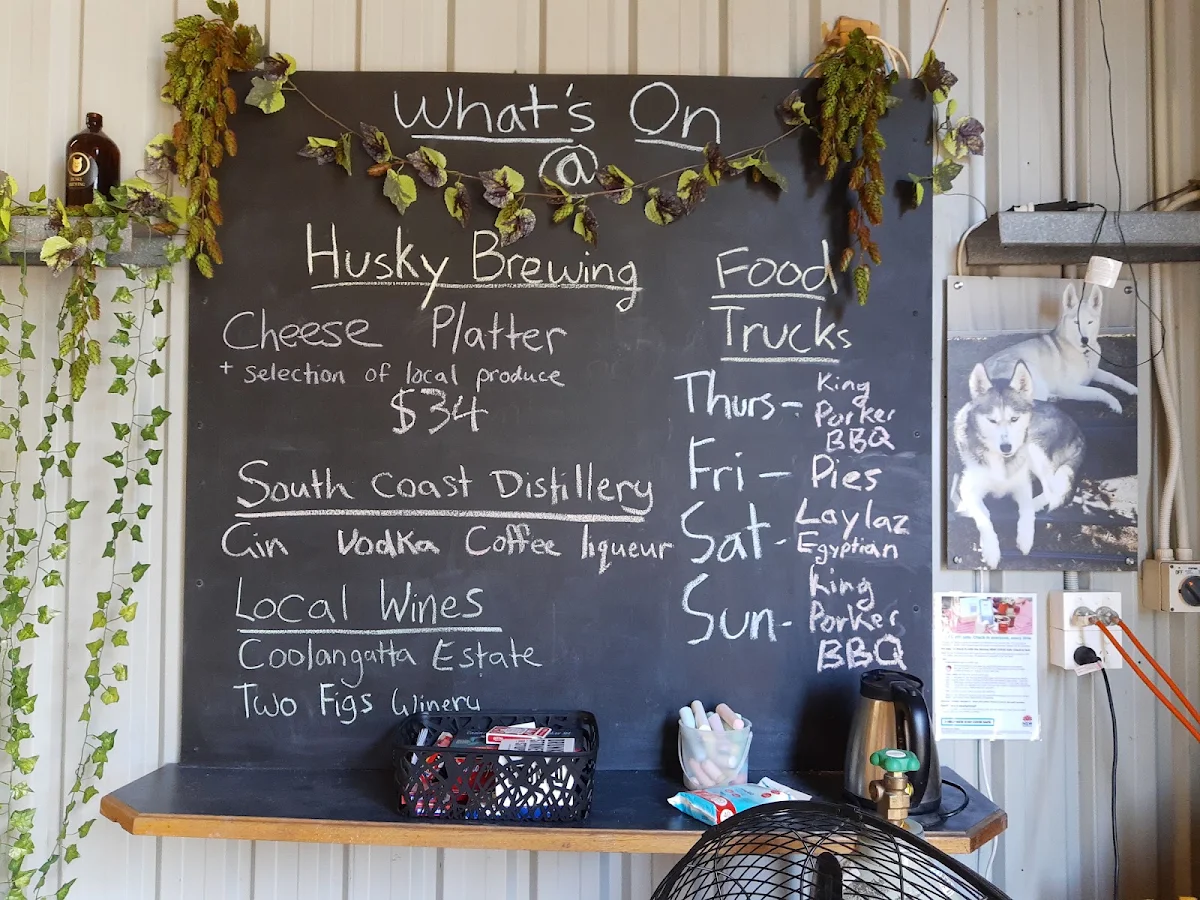 What's On
@
Husky Brewing
Cheese Platter
+ selection of local produce
$34
South Coast Distillery
Gin Vodka Coffee liqueur
Local Wines
Coolangatta Estate
Two Figs Winery
Food
Trucks
Thurs - King
Porker
BBQ
Fri - Pies
Sat - Laylaz
Egyptian
Sun - King
Porker
BBQ